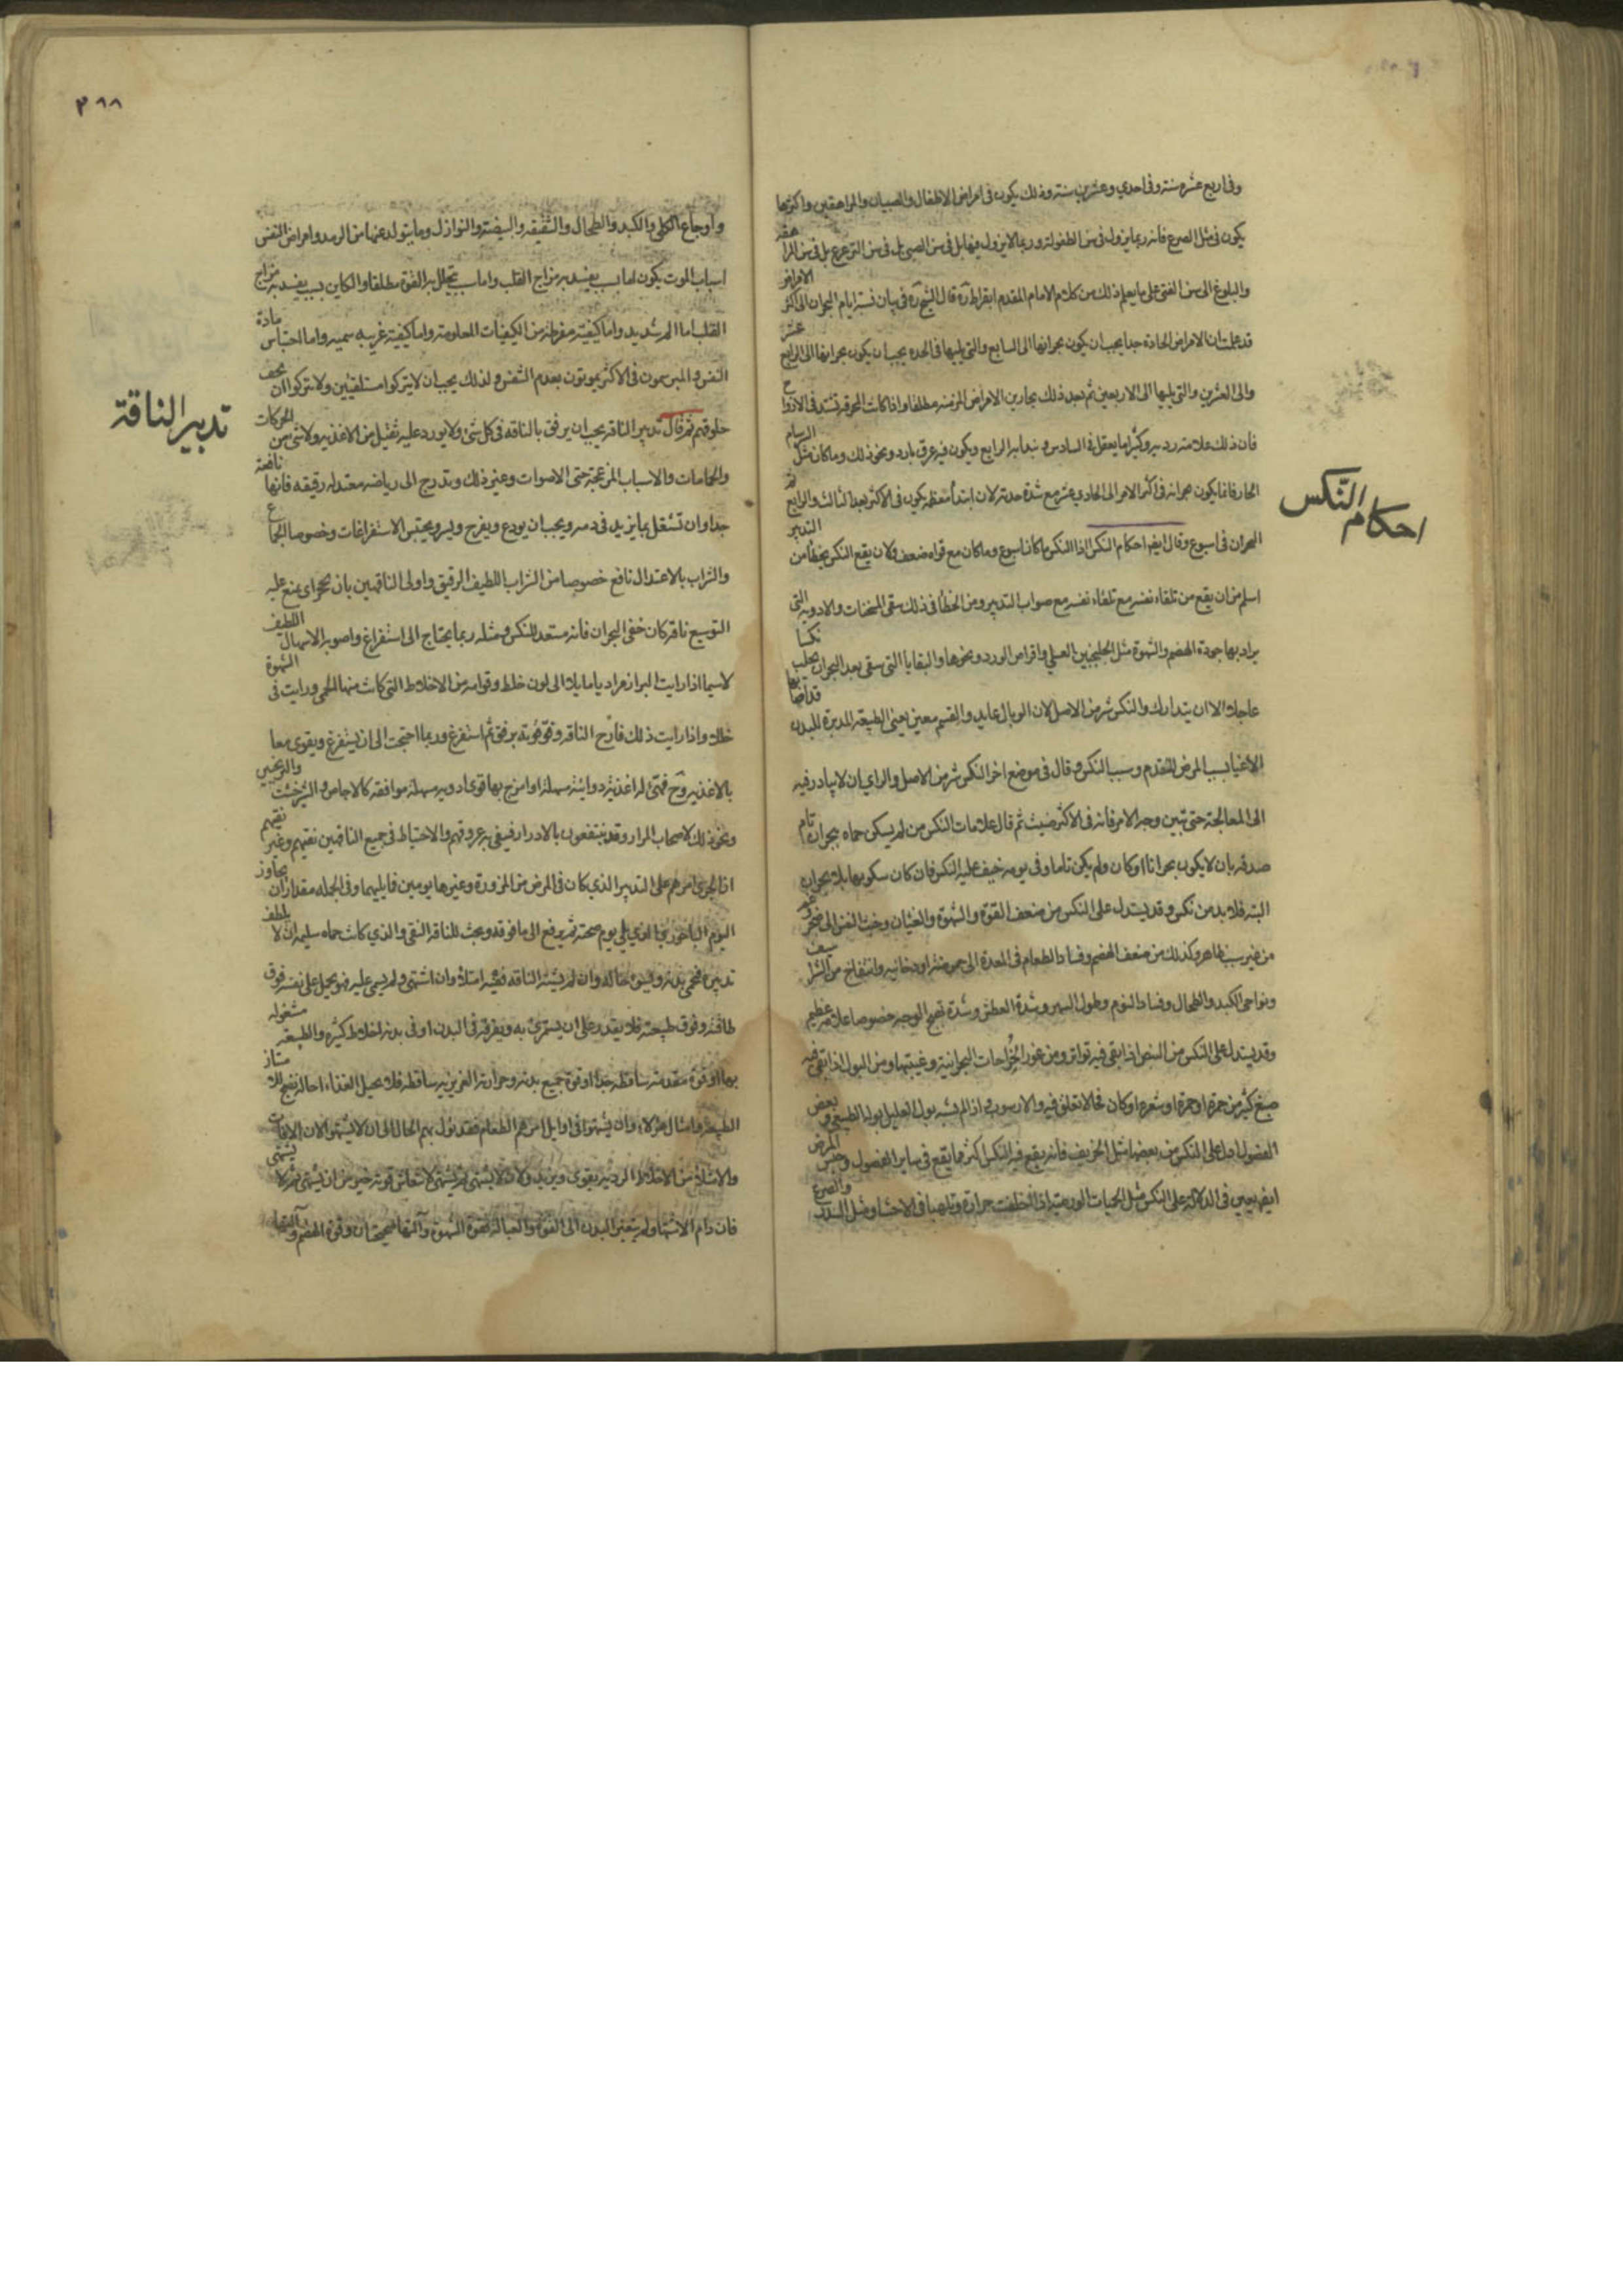 وفي اربع عشرة سنة وفي احدي وعشرين سنة وذلك يكون في امراض الاطفال والصبيان والمراهقين واكثرها
يكون في مثل الصرع فانه ربما يزول في سن الطفولة وربما لا يزول فيها بل في سن الصبي بل في سن الترعرع بل في سن المراهقة
والبلوغ الى سن الفتى على ما يعلم ذلك من كلام الامام المقدم ابقراط قال الشيخ في بيان نسبة ايام البحران الى اكثر الامراض
قد علمت ان الامراض الحادة جدا يجب ان يكون بحرانها الى السابع والتي يليها في الحدة يجب ان يكون بحرانها الى الرابع عشر
والى العشرين والتي يليها الى الاربعين ثم بعد ذلك بحارين الامراض المزمنة مطلقا واذا كانت المحرقة تشتد في الازواج
فان ذلك علامة ردية وكثيرا ما يقتل في السادس و الرابع ويكون فيه عرق بارد ونحو ذلك وما كان مثل السرسام
الحار فانما يكون بحرانه في اكثر الامر الى الحادي عشر مع شدة حدته لان ابتدأ معظمه يكون في الاكثر بعد الثالث والرابع ثم
البحران في اسبوع وقال ايضا احكام النكس اذا النكس ما كان اسبوع وما كان مع قواة ضعف ولان يقع النكس بخطأ من التدبير
اسلم من ان يقع من تلقاء نفسه مع صواب التدبير ومن الخطأ في ذلك سقي المسخنات والادوية التي
يراد بها جودة الهضم والشهوة مثل الجلنجبين العسلي واقراص الورد ونحوها والبقايا التي سقى بعد البحران يجلب نكسا
عاجلا الا ان يتدارك والنكس شر من الاصل لان الوبال عايد والقيم معين يعني الطبيعة المدبرة للبدن
الاعيا بسبب المرض المتقدم وسبب النكس وقال في موضع اخر النكس شر من الاصل والراي ان لا يبادر فيه
الى المعالجة حتى تبين وجه الامر فانه في الاكثر خبيث ثم قال علامات النكس من لم يسكن حماه ببحران تام
صدقه بان لا يكون بحرانا او كان ولم يكن تاما وفي يومه خيف عليه النكس فان كان سكونها بلا بحران
البتة فلا بد من نكس وقد يستدل على النكس من ضعف القوة والشهوة والغثيان وخبث النفس
من غير سبب ظاهر وكذلك من ضعف الهضم وفساد الطعام في المعدة الى حموضة او دخانية وانتفاخ من
ونواحي الكبد والطحال وفساد النوم وطول السهر وشدة العطش وشدة تهيج الوجه خصوصا علامة عظيمة
وقد يستدل على النكس من النبض اذا بقي فيه تواتر ومن غور الخراجات البحرانية وغيبتها ومن البول اذا بقي فيه
صبغ كثير من حمرة او صفرة او شعرة او كان فجا لا تعلق فيه والا رسوب واذا لم يشبه بول العليل بوله الطبيعي وبعض
الفصول ادل على النكس من بعضها مثل الخريف فانه يقع فيه النكس اكثر مما يقع في ساير الفصول وجنس المرض
ايضا يعين في الدلالة على النكس مثل الحميات الورمية اذا خلفت حرارة وتلهبا في الاحشاء ومثل السدد والصرع
احكام النكس
٣٩٨
واوجاع الكلى والكبد والطحال والشقيقة والبيضة والنوازل وما يتولد عنها من الرمد وامراض النفس
اسباب الموت يكون اما بسبب يفسد به مزاج القلب واما سبب يتحلل به القوة مطلقا والكاين بسبب يفسد به مزاج
القلب اما الم شديد واما كيفية مفرطة من الكيفيات المعلومة واما كيفية غريبة سمية واما احتباس مادة
النفس والمبرسمون في الاكثر يموتون بعدم التنفس ولذلك يجب ان لا يتركوا مستلقيين ولا يتركوا ان يجف
حلوقهم ثم قال تدبير الناقه يجب ان يرفق بالناقه في كل شئ ولا يورد عليه ثقيل من الاغذية ولا شئ من الحركات
والحمامات والاسباب المزعجة حتى الاصوات وغير ذلك ويتدرج الى رياضة معتدلة رقيقة فانها نافعة
جدا وان تشغل بما يزيد في دمه ويجب ان يودع ويفرح ويسر ويجنب الاستفراغات وخصوصا الجماع
والشراب بالاعتدال نافع خصوصا من الشراب اللطيف الرقيق واولى الناقهين بان يمنع عليه
التوسيع ناقه كان خفي البحران فانه مستعد للنكس ومثله ربما يحتاج الى استفراغ واصوبه الاسهال اللطيف
لا سيما اذا رايت البراز مراريا مايلا الى لون خلط وقوامه من الاخلاط التي كانت منها الحمى ورايت في الشهوة
خللا واذا رايت ذلك فأرح الناقه وقو قوته برفق ثم استفرغ وربما احتجت الى ان يستفرغ ويقوى معا
بالاغذية وح فهيئ له اغذية دوائية مسهلة او امزج بها قوى ادوية مسهلة موافقة كالاجاص والشيرخشت والترنجبين
ونحو ذلك لاصحاب المرار وقد ينتفعون بالادرار فينقى به عروقهم والاحتياط في جميع الناقهين نقيهم وغير نقيهم
ان يجرى امرهم على التدبير الذي كان في المرض من المزورة وغيرها يومين فما يليهما وفي الجملة مقدار ان يجاوز
اليوم الباحوري الذي يلي يوم صحته ثم يرفع الى ما فوقه ويجب للناقه النقي والذي كانت حماه سليمة ان لا يلطف
تدبيره فيحمى بدنه ويسوء حاله وان لم يشته الناقه ففيه امتلاء وان اشتهى ولم يسمن عليه فهو يحمل على نفسه فوق
طاقته وفوق طبيعته فلا يقدر على ان يستمرئ به ويفرقه في البدن او في بدنه اخلاط كثيرة والطبيعة مشغولة
بها او قوة معدته ساقطة جدا او قوة جميع بدنه وحرارته الغريزية ساقطة فلا يحيل الغذاء احالة
الطبيعة وامثال هؤلاء وان يشتهوا في اوايل امرهم الطعام فقد يؤل بهم الحال الى ان لا يشتهوا لان الافات
والامتلاء من الاخلاط الردية يقوى ويزيد ولان لا يشتهي ثم يشتهي لانتعاش قوته خير من ان يشتهي ثم لا يشتهي
فان دام الاشتهاء ولم يتغير البدن الى القوة والعبالة فقوة الشهوة وآلتها صحيحتان وقوة الهضم وآلتها
تدبير الناقة